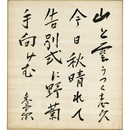 山と雲うつくし久
今日秋晴れて
告別式に野菊
手向けむ